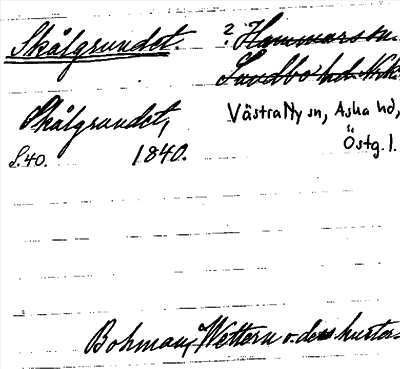 Skålgrundet.
? Hammars sn.
Sundbo hd. Nke.
Skålgrundet,
Västra Ny sn, Aska hd,
Östg. l.
S. 40. 1840.
Bohman, Wettern o. dess kuster.